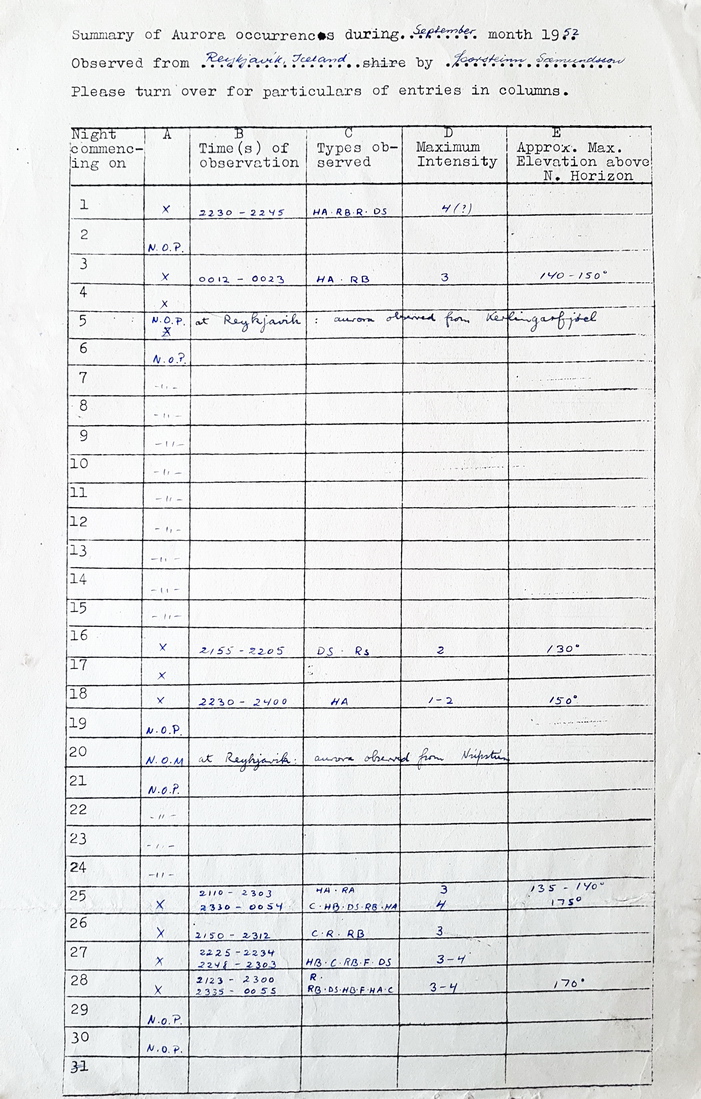 Summary of Aurora occurrences during..September.. month 1952
Observed from ..Reykjavik, Iceland..shire by ..Þorsteinn Sæmundsson
Please turn over for particulars of entries in columns.
Night commenc- ing on A B Time(s) of observation C Types ob- served D Maximum Intensity E Approx. Max. Elevation above N. Horizon
1 X 2230 - 2245 HA·RB·R·DS 4(?)
2 N.O.P.
3 X 0012 - 0023 HA · RB 3 140 - 150°
4 X
5 N.O.P. X at Reykjavik : aurora observed from Kerlingarfjöll
6 N.O.P.
7 -"-
8 -"-
9 -"-
10 -"-
11 -"-
12 -"-
13 -"-
14 -"-
15 -"-
16 X 2155 - 2205 DS · Rs 2 130°
17 X
18 X 2230 - 2400 HA 1-2 150°
19 N.O.P.
20 N.O.M at Reykjavik: aurora observed from
21 N.O.P.
22 -"-
23 -"-
24 -"-
25 2110 - 2303 HA·RA 3 135 - 140°
X 2330 - 0054 C·HB·DS·RB·HA 4 175°
26 X 2150 - 2312 C·R·RB 3
27 2225 - 2234
X 2248 - 2303 HB·C·RB·F·DS 3-4
28 2123 - 2300 R·
X 2335 - 0055 RB·DS·HB·F·HA·C 3-4 170°
29 N.O.P.
30 N.O.P.
31